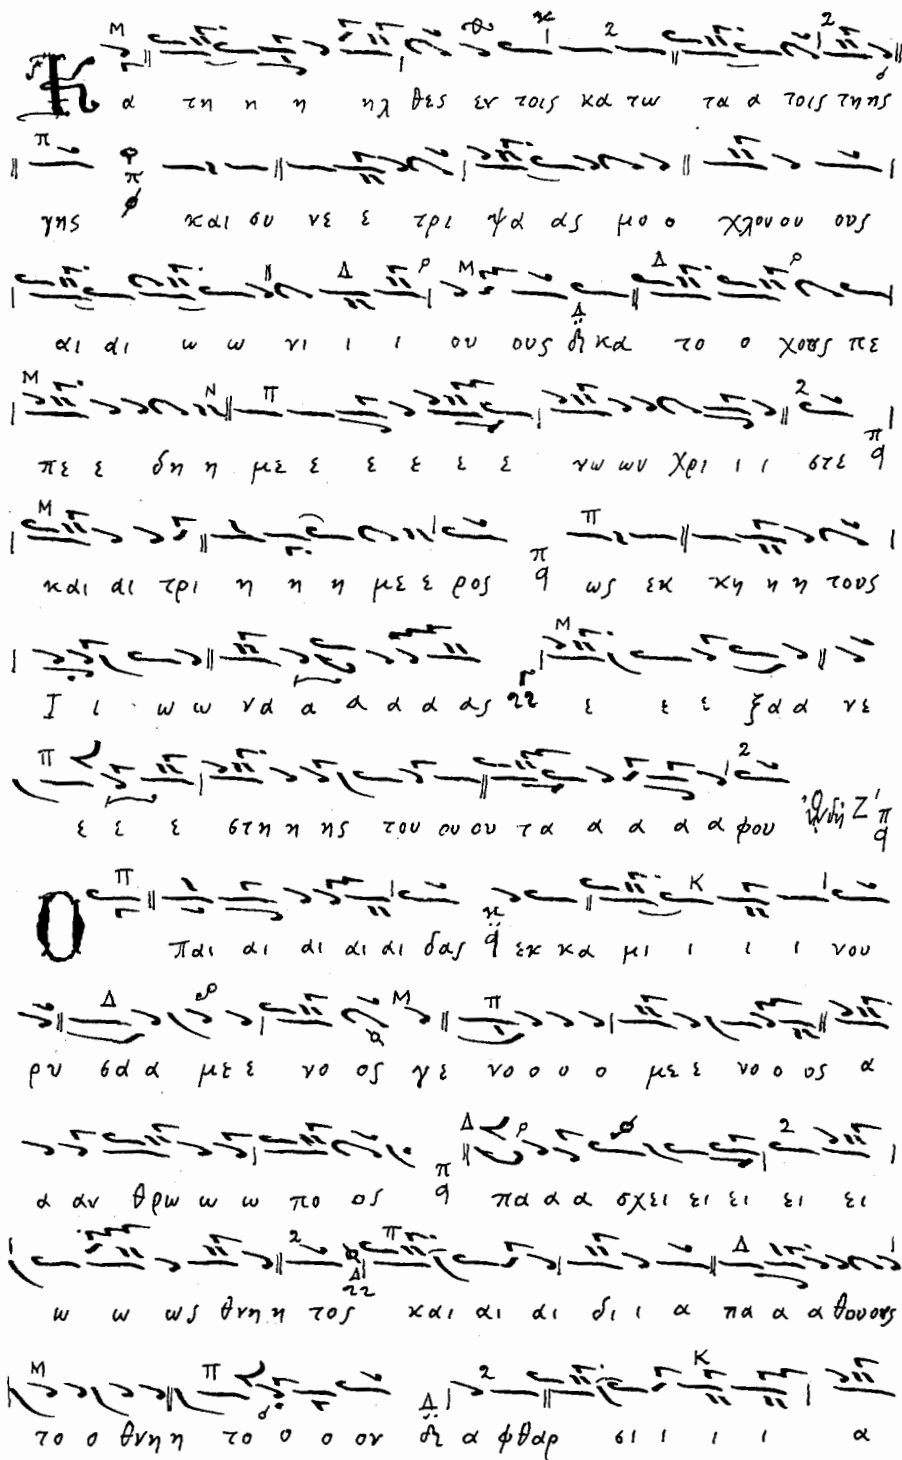 Κ α τη η η ηλ θες εν τοις κα τω τα α τοις της
γης και συ νε ε τρι ψα ας μο ο χλουου ους
αι αι ω ω νι ι ι ου ους κα το ο χους πε
πε ε δη η με ε ε ε ε ε νω ων Χρι ι ι στε
και αι τρι η η η με ε ρος ως εκ κη η η τους
Ι ι ω ω να α α α α ας ε ε ε ξαα νε
ε ε ε στη η ης του ου ου τα α α α α φου Ὠδὴ Ζ΄
Ο παι αι αι αι αι δας εκ κα μι ι ι ι νου
ρυ σα α με ε νο ος γε νο ο ο ο με ε νο ο ος α
α αν θρω ω ω πο ος πα α α σχει ει ει ει ει
ω ω ως θνη η τος και αι αι δι ι α πα α α θουους
το ο θνη η το ο ο ον α φθαρ σι ι ι ι α